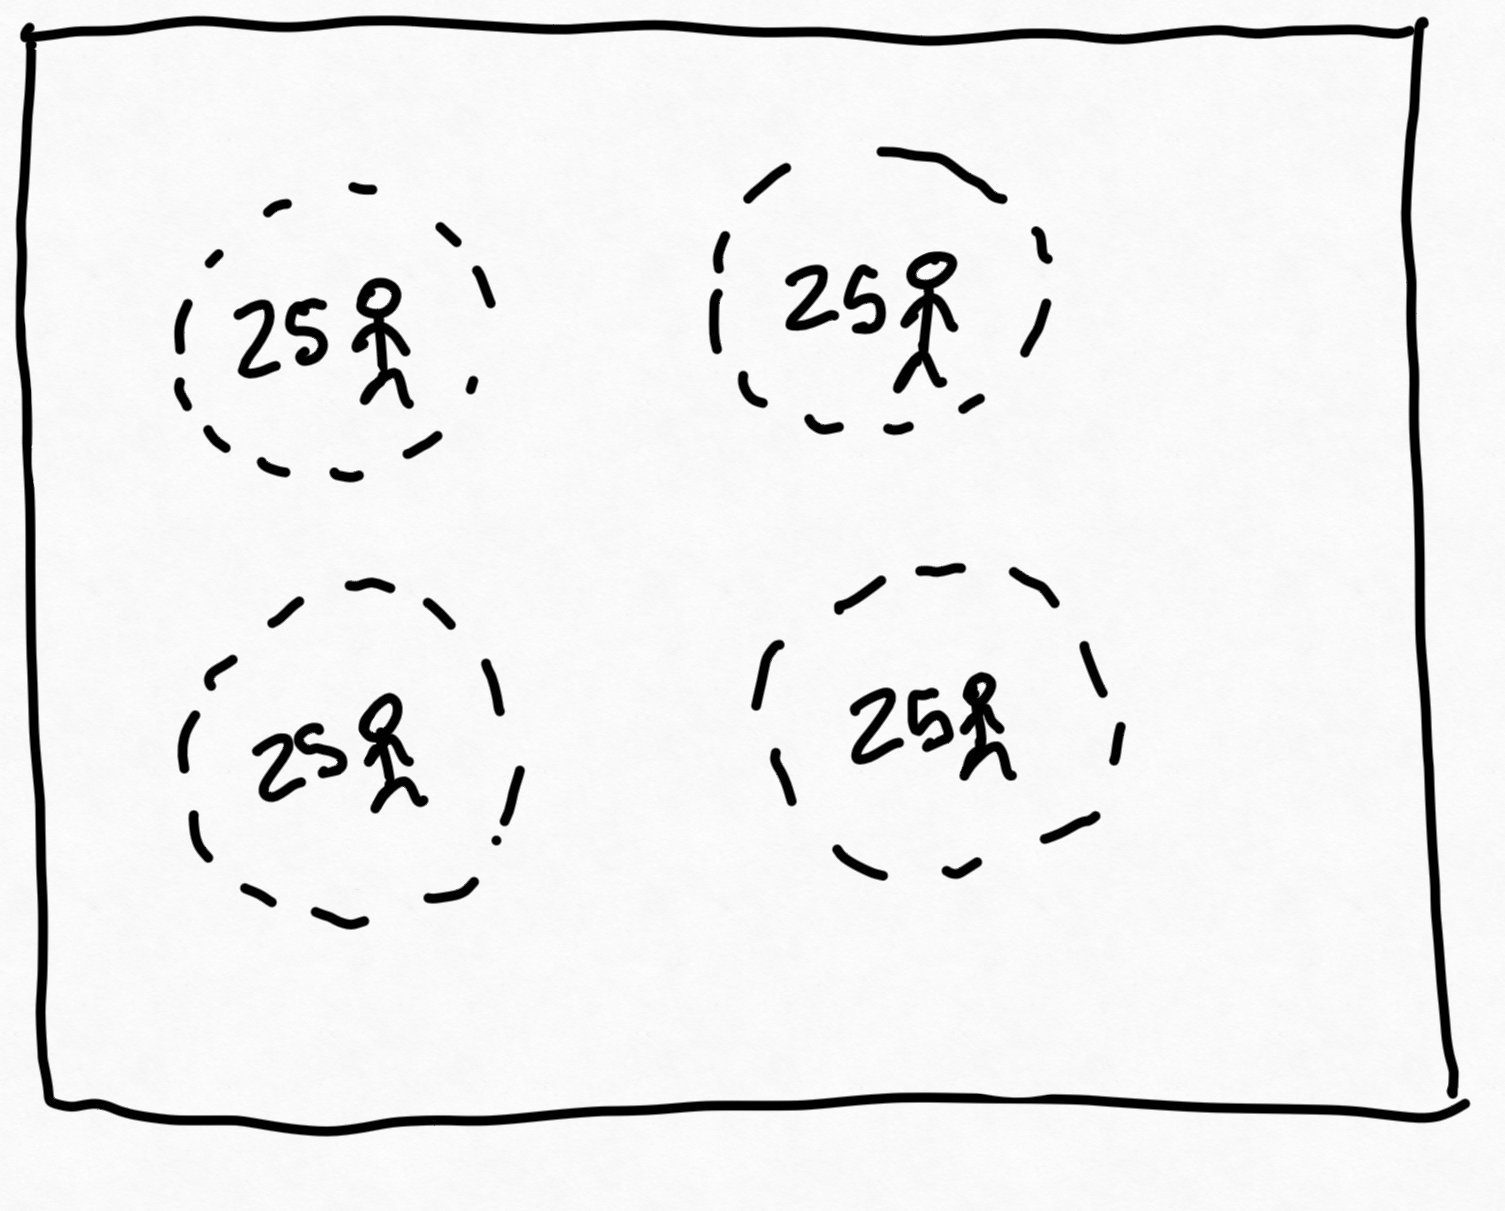 25
25
25
25